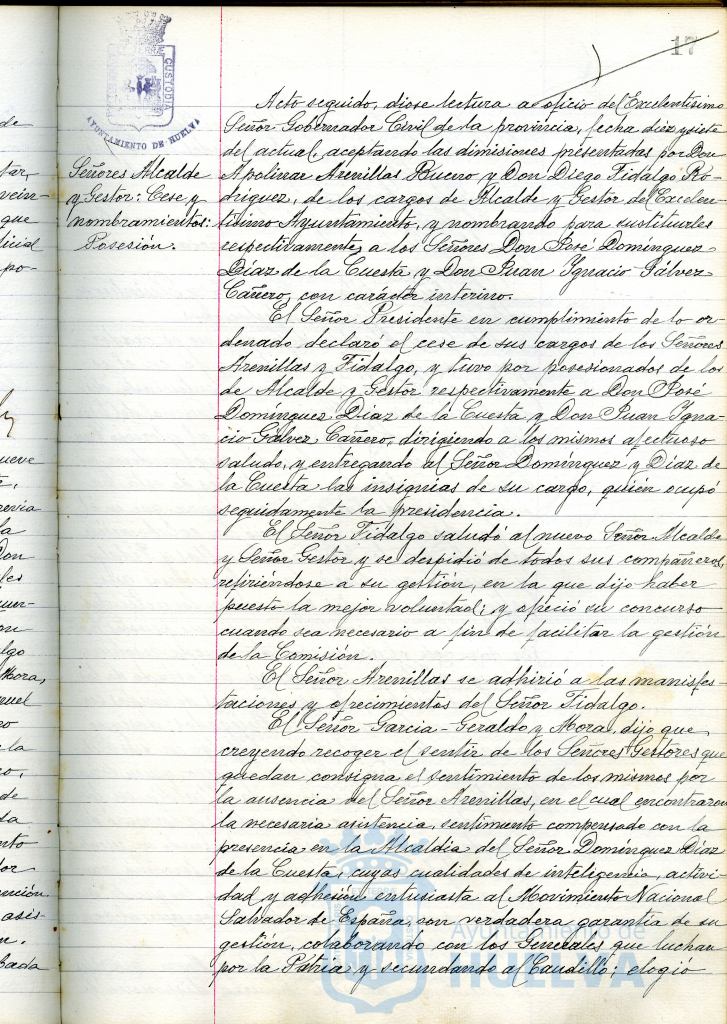 17
CUSTODIA
AYUNTAMIENTO DE HUELVA
Señores Alcalde
y Gestor: Cese y
nombramientos:
Posesión.
Acto seguido, diose lectura a oficio del Excelentísimo
Señor Gobernador Civil de la provincia, fecha diez y siete
del actual, aceptando las dimisiones presentadas por Don
Apolinar Arenillas Ruero y Don Diego Fidalgo Ro-
dríguez, de los cargos de Alcalde y Gestor del Excelen-
tísimo Ayuntamiento, y nombrando para sustituirles
respectivamente a los Señores Don José Domínguez
Díaz de la Cuesta y Don Juan Ygnacio Gálvez
Cañero, con carácter interino.
El Señor Presidente en cumplimiento de lo or-
denado declaró el cese de sus cargos de los Señores
Arenillas y Fidalgo, y tuvo por posesionados de los
de Alcalde y Gestor respectivamente a Don José
Domínguez Díaz de la Cuesta y Don Juan Ygna-
cio Gálvez Cañero, dirigiendo a los mismos afectuoso
saludo, y entregando al Señor Domínguez y Díaz de
la Cuesta las insignias de su cargo, quién ocupó
seguidamente la presidencia.
El Señor Fidalgo saludó al nuevo Señor Alcalde
y Señor Gestor y se despidió de todos sus compañeros,
refiriéndose a su gestión, en la que dijo haber
puesto la mejor voluntad; y ofreció su concurso
cuando sea necesario a fin de facilitar la gestión
de la Comisión.
El Señor Arenillas se adhirió a las manisfes-
taciones y ofrecimientos del Señor Fidalgo.
El Señor Garcia-Geraldo y Mora, dijo que
creyendo recoger el sentir de los Señores Gestores que
quedan, consigna el sentimiento de los mismos por
la ausencia del Señor Arenillas, en el cual encontraron
la necesaria asistencia, sentimiento compensado con la
presencia en la Alcaldia del Señor Domínguez Díaz
de la Cuesta, cuyas cualidades de inteligencia, activi-
dad y adhesión entusiasta al Movimiento Nacional
Salvador de España, son verdadera garantía de su
gestión, colaborando con los Generales que luchan
por la Patria y secundando al Caudillo; elogió
Ayuntamiento de
HUELVA